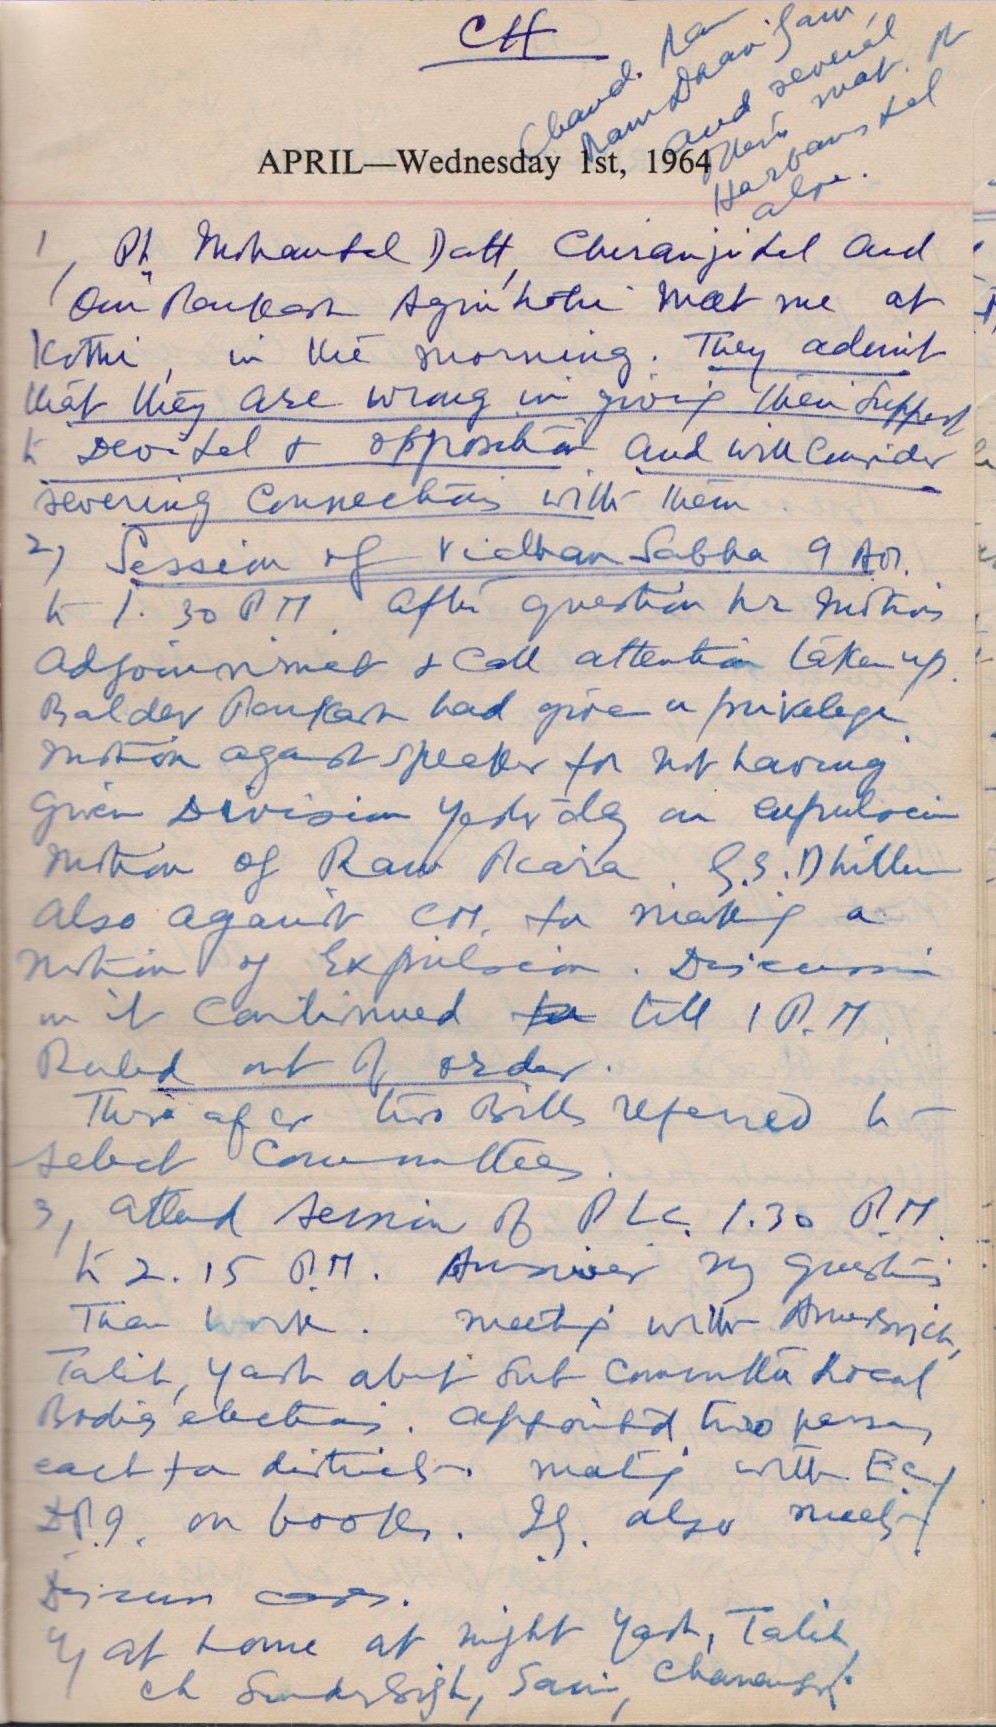 CH
Chand. Ram
Ram Dhan
and several
others met. Pt
Harbans Lal
also.
APRIL—Wednesday 1st, 1964
1, Pt Mohanlal Datt, Chiranji Lal and
Om Parkash Agnihotri met me at
Kothi, in the morning. They admit
that they are wrong in giving their support
to Devi Lal & opposition and will consider
severing connections with them.
2, Session of Vidhan Sabha 9 AM.
to 1.30 PM. After question hr motions
adjournment & call attention taken up.
Baldev Parkash had given a privelege
motion against speaker for not having
given Division yesterday on expulsion
motion of Ram Piara. G.S. Dhillon
also against CM, for making a
motion of Expulsion. Discussion
in it continued till 1 P.M.
Ruled out of order.
Thereafter two Bills referred to
select Committees.
3, attend session of P L C. 1.30 P.M.
to 2.15 P.M. Answer my questions
Then work. meeting with
Talib, Yash about sub committee Local
Bodies elections. appointed two persons
each for districts. meeting with E.C.
D.P.I. on books. I.G. also meets
Discuss
4, at home at night Yash, Talib,
Ch Sunder Singh, Saini,